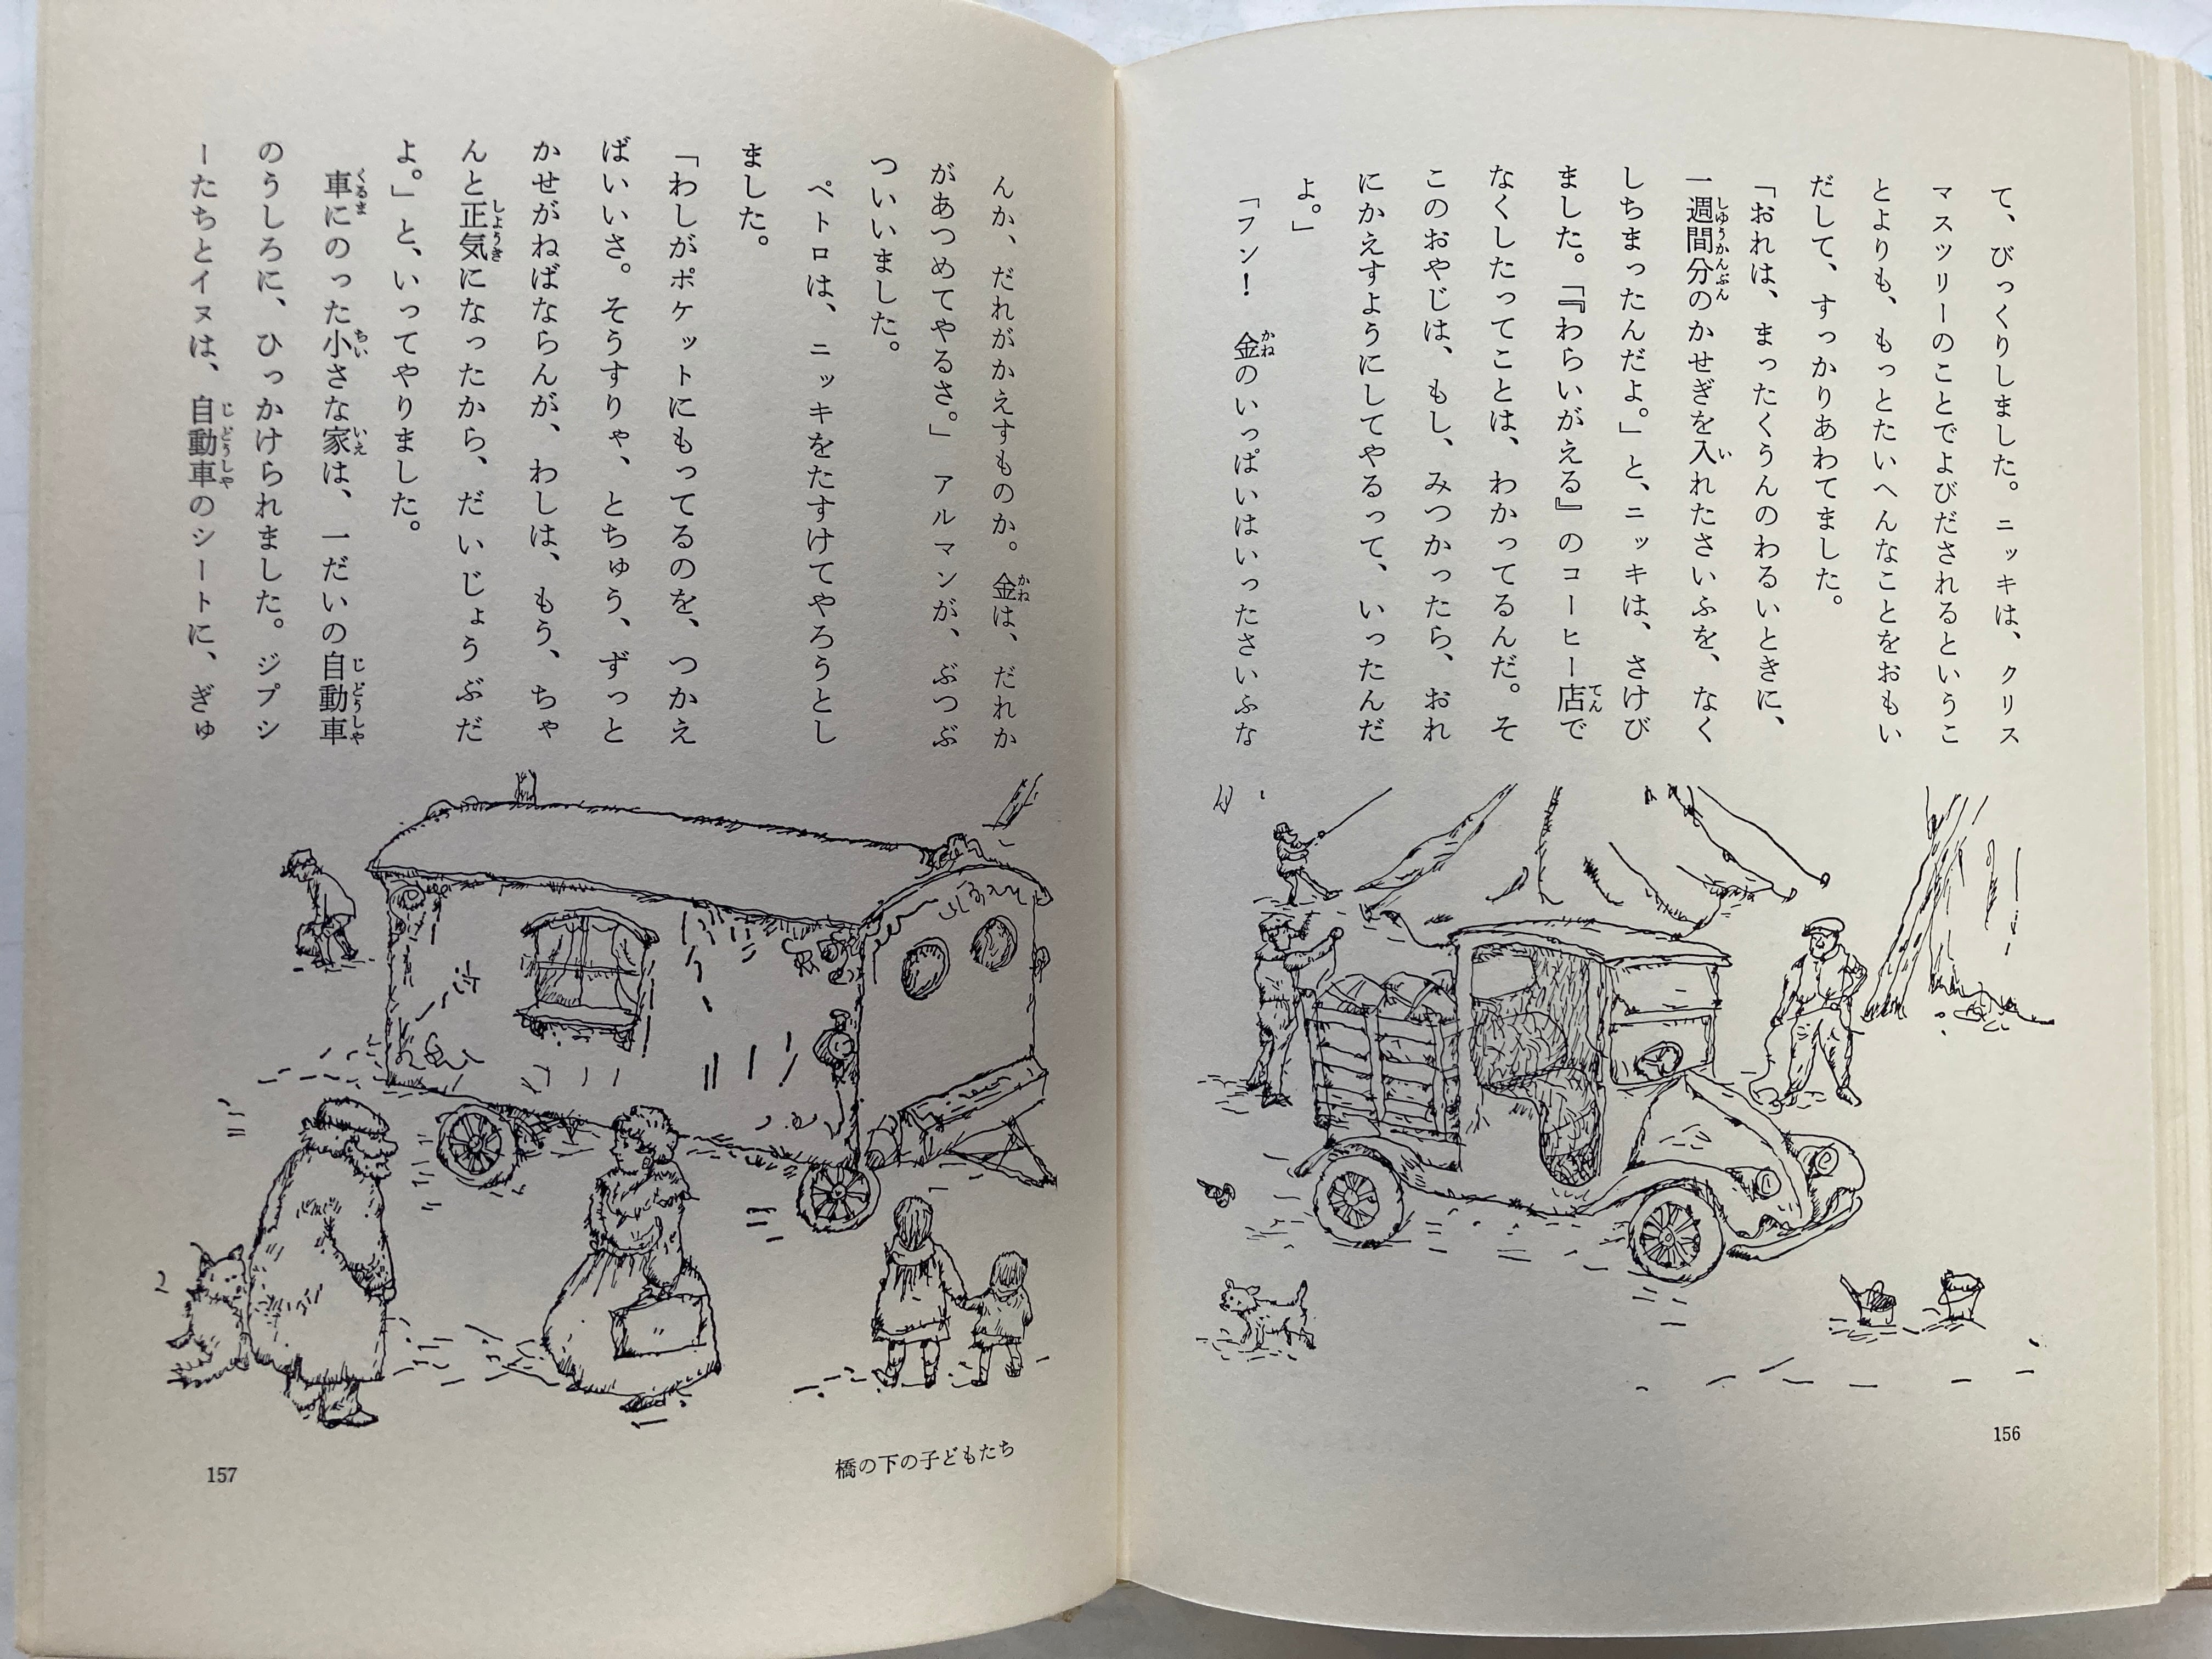 て、びっくりしました。ニッキは、クリス
マスツリーのことでよびだされるというこ
とよりも、もっとたいへんなことをおもい
だして、すっかりあわてました。
「おれは、まったくうんのわるいときに、
一週間分のかせぎを入れたさいふを、なく
しちまったんだよ。」と、ニッキは、さけび
ました。「『わらいがえる』のコーヒー店で
なくしたってことは、わかってるんだ。そ
このおやじは、もし、みつかったら、おれ
にかえすようにしてやるって、いったんだ
よ。」
「フン！　金のいっぱいはいったさいふな
156
んか、だれがかえすものか。金は、だれか
があつめてやるさ。」アルマンが、ぶつぶ
ついいました。
ペトロは、ニッキをたすけてやろうとし
ました。
「わしがポケットにもってるのを、つかえ
ばいいさ。そうすりゃ、とちゅう、ずっと
かせがねばならんが、わしは、もう、ちゃ
んと正気になったから、だいじょうぶだ
よ。」と、いってやりました。
車にのった小さな家は、一だいの自動車
のうしろに、ひっかけられました。ジプシ
ーたちとイヌは、自動車のシートに、ぎゅ
橋の下の子どもたち
157